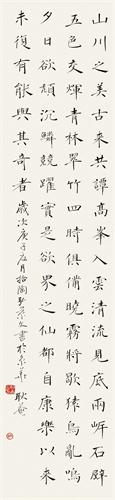 山川之美古來共譚高峯入雲清流見底兩岸石壁
五色交輝青林翠竹四時俱備曉霧將歇猿鳥亂鳴
夕日欲頹沉鱗競躍實是欲界之仙都自康樂以來
未復有能與其奇者 歲次庚子 月拾陶 文書於京華 耿